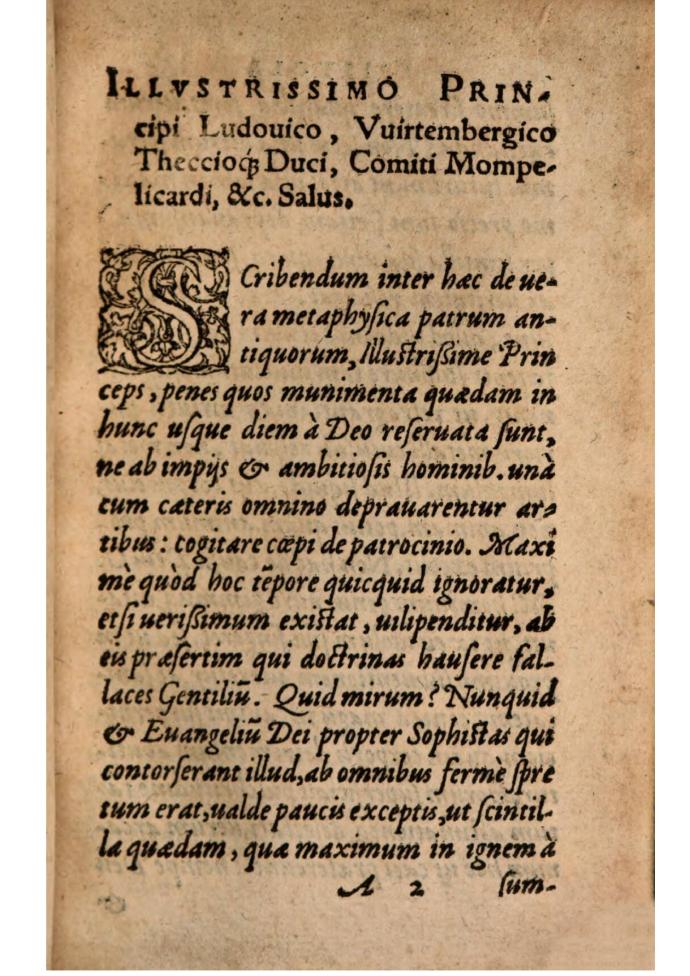 ILLVSTRISSIMO PRIN-
cipi Ludouico, Vuirtembergico
Theccioq́; Duci, Comiti Mompe-
licardi, &c. Salus.
SCribendum inter hæc de ue-
ra metaphyſica patrum an-
tiquorum, Illuſtrißime Prin
ceps, penes quos munimenta quædam in
hunc uſque diem à Deo reſeruata ſunt,
ne ab impijs & ambitioſis hominib. unà
cum cæteris omnino deprauarentur ar-
tibus: cogitare cœpi de patrocinio. Maxi
mè quòd hoc tẽpore quicquid ignoratur,
etſi uerißimum exiſtat, uilipenditur, ab
eis præſertim qui doctrinas hauſere fal-
laces Gentiliũ. Quid mirum? Nunquid
& Euangeliũ Dei propter Sophiſtas qui
contorſerant illud, ab omnibus fermè ſpre
tum erat, ualde paucis exceptis, ut ſcintil-
la quædam, quæ maximum in ignem à
A 2 ſum-